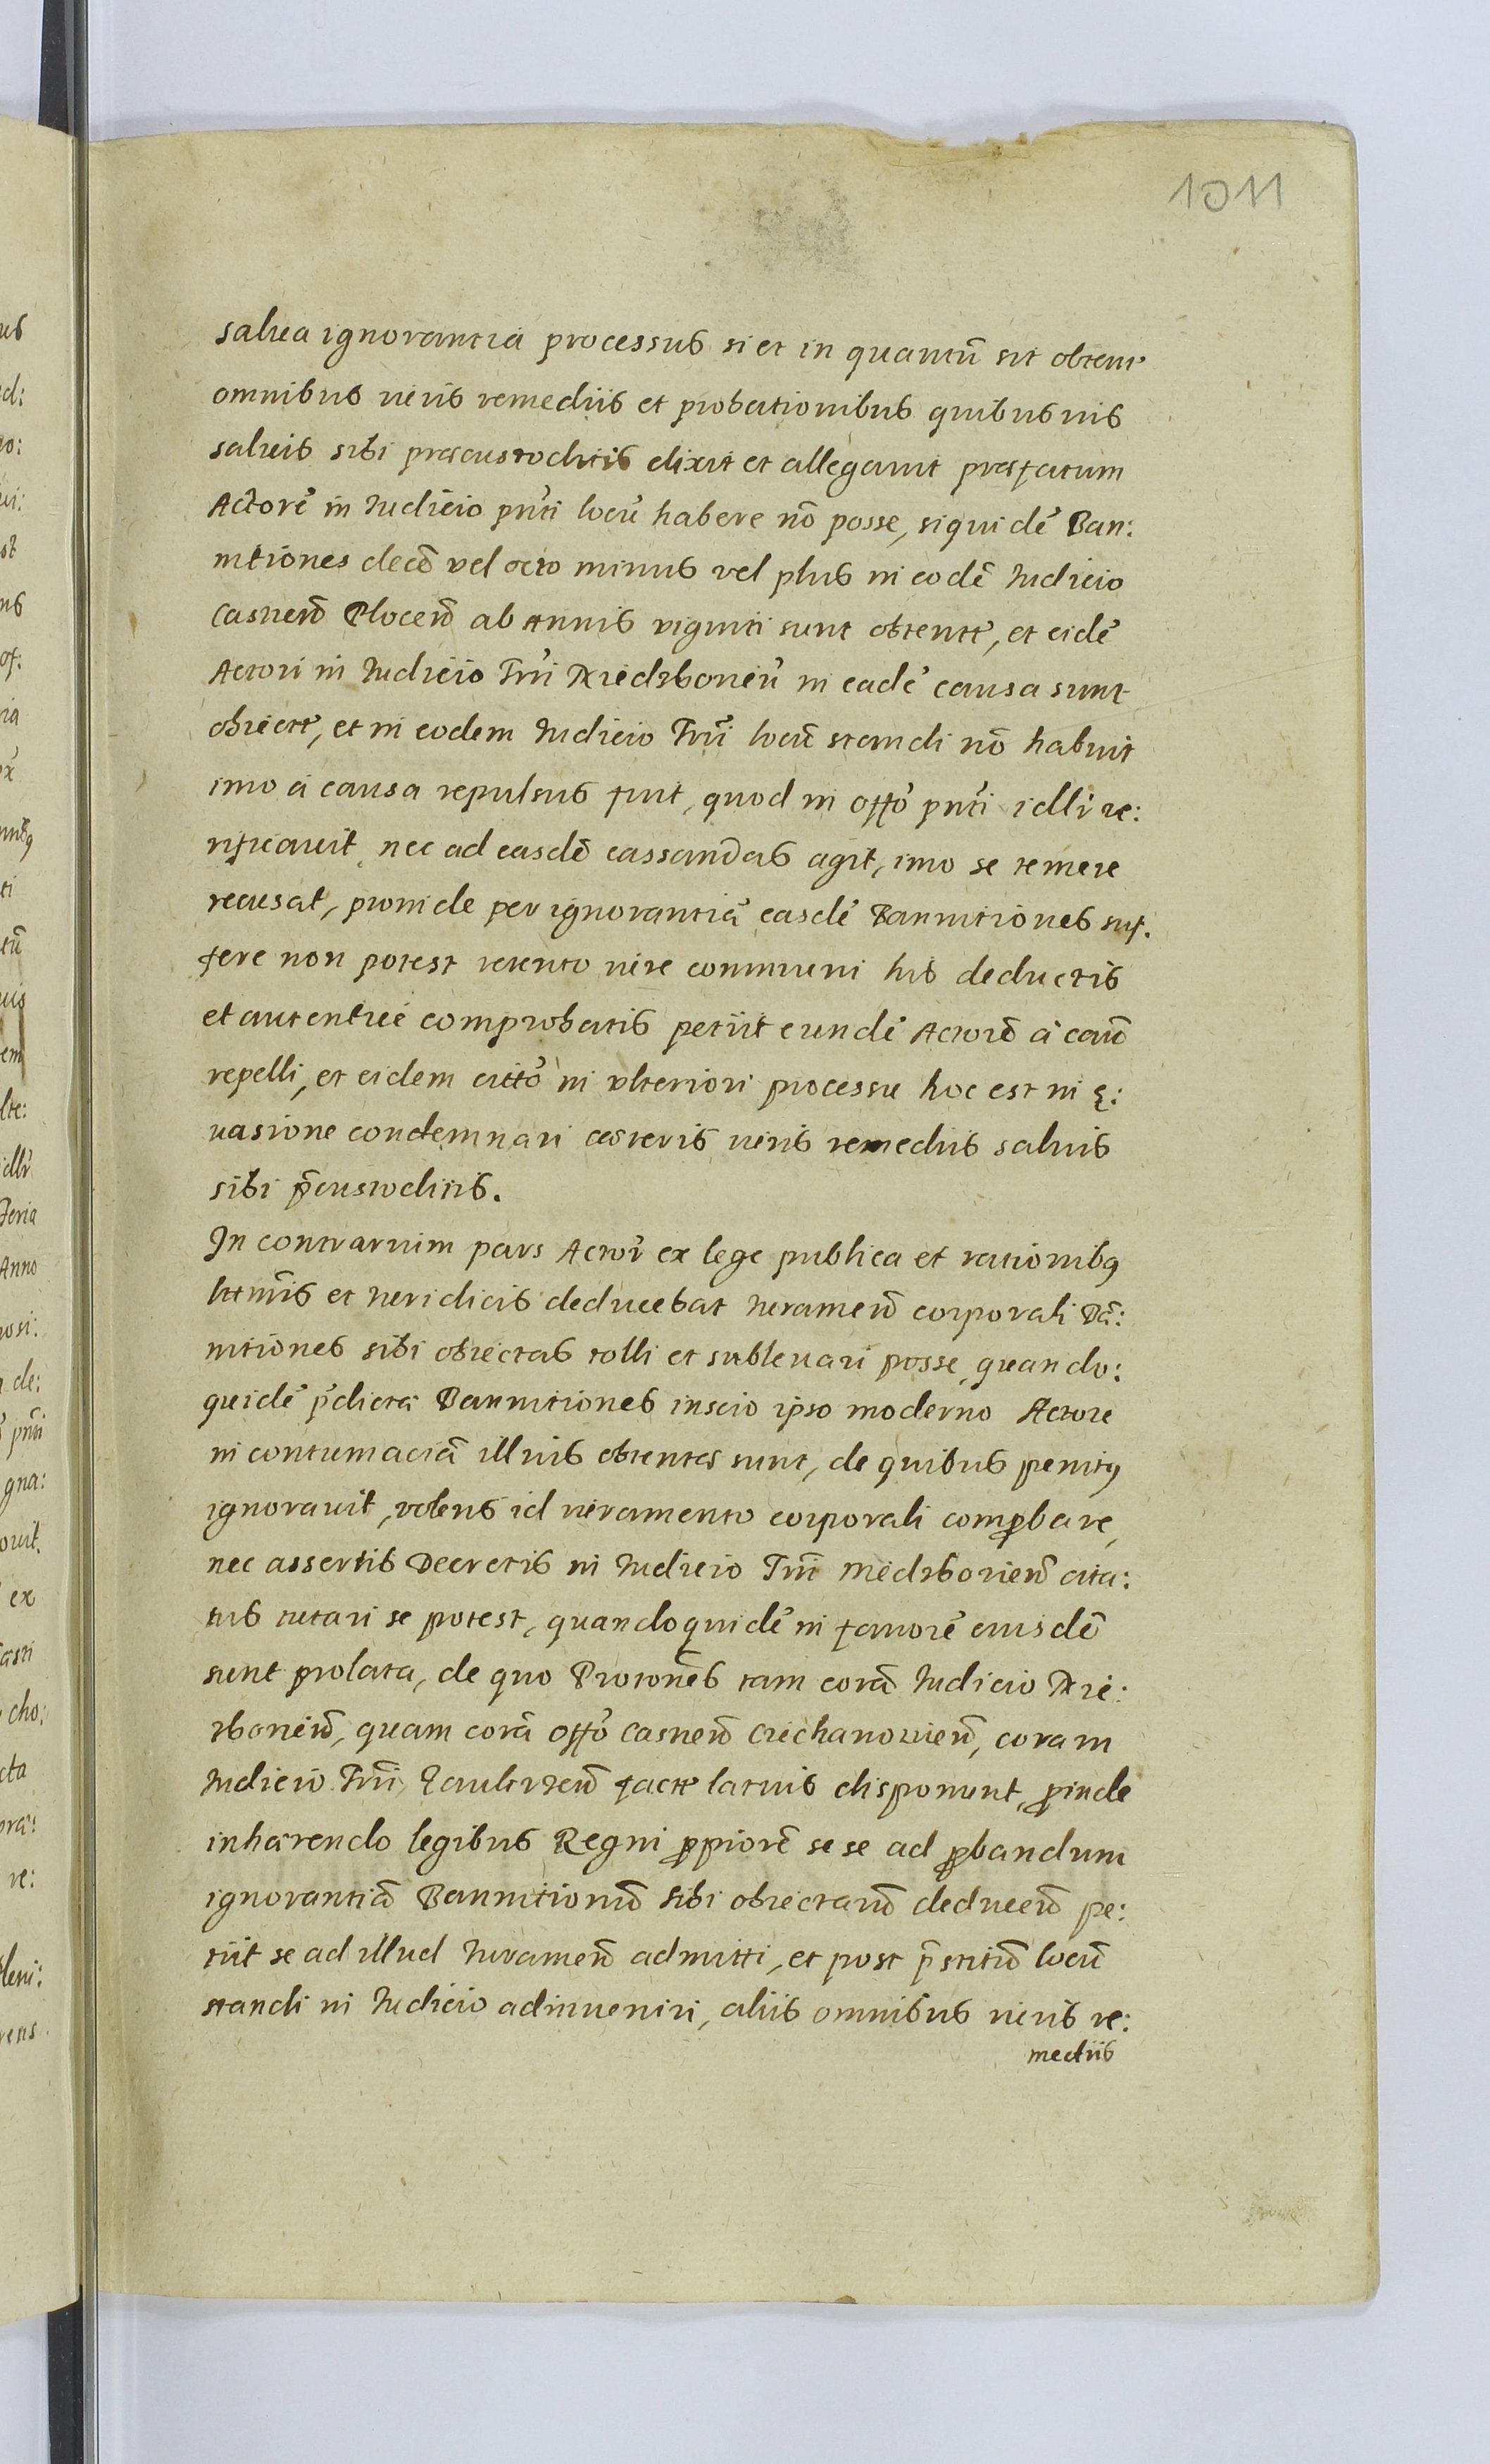 1011
salua ignorantia processus si et in quantũ sit obtent
omnibus iuris remediis et probationibus quibusuis
saluis sibi praecustoditis dixit et allegauit praefatum
Actorẽ in Iudicio pñti locũ habere nõ posse, siquidẽ Ban:
nitiones decẽ vel octo minus vel plus in eodẽ Iudicio
Casñeñ Ploceñ ab Annis viginti sunt obtentę, et eidẽ
Actori in Iudicio Tñi Miedzboñeñ in eadẽ causa sunt
obiectę, et in eodem Iudicio Tñi locũ standi nõ habuit
imo à causa repulsus fuit, quod in offo pñti idlr re:
rificauit, nec ad easdẽ cassandas agit, imo se temere
recusat, proinde per ignorantiã easdẽ Bannitiones suf.
fere non potest retento iure communi his deductis
et autentice comprobatis petiit eundẽ Actorẽ à cauã
repelli, et eidem citto in vlteriori processu hoc est in e:
uasione condemnari caeteris iuris remediis saluis
sibi p̃custoditis.
In contrarium pars Actor ex lege publica et rationibꝯ
lttmis et veridicis deducebat Iurameñ corporali Bã:
nitiones sibi obiectas tolli et subleuari posse, quando:
quidẽ p̃dictà Bannitiones inscio ipso moderno Actore
in contumaciã illius obtentas sunt, de quibus penitꝯ
ignorauit, volens id iuramento corporali comꝓbare,
nec assertis Decretis in Iudicio Tñi Miedzborieñ cita:
tus tutari se potest, quandoquidẽ in fauorẽ eiusdẽ
sunt prolata, de quo Protoñes tam corã Iudicio Mie:
zboneñ, quam corã offo Casñeñ Ciechanouieñ, coram
Iudicio Tñi Zaulirzeñ factę latius disponunt, ꝓinde
inhaerendo legibus Regni ꝓpiorẽ sese ad ꝓbandum
ignorantiã Bannitionũ sibi obiectarũ deduceñ pe:
tiit se ad illud Iurameñ admitti, et post p̃stitũ locũ
standi in Iudicio adinueniri, aliis omnibus iuris re:
mediis